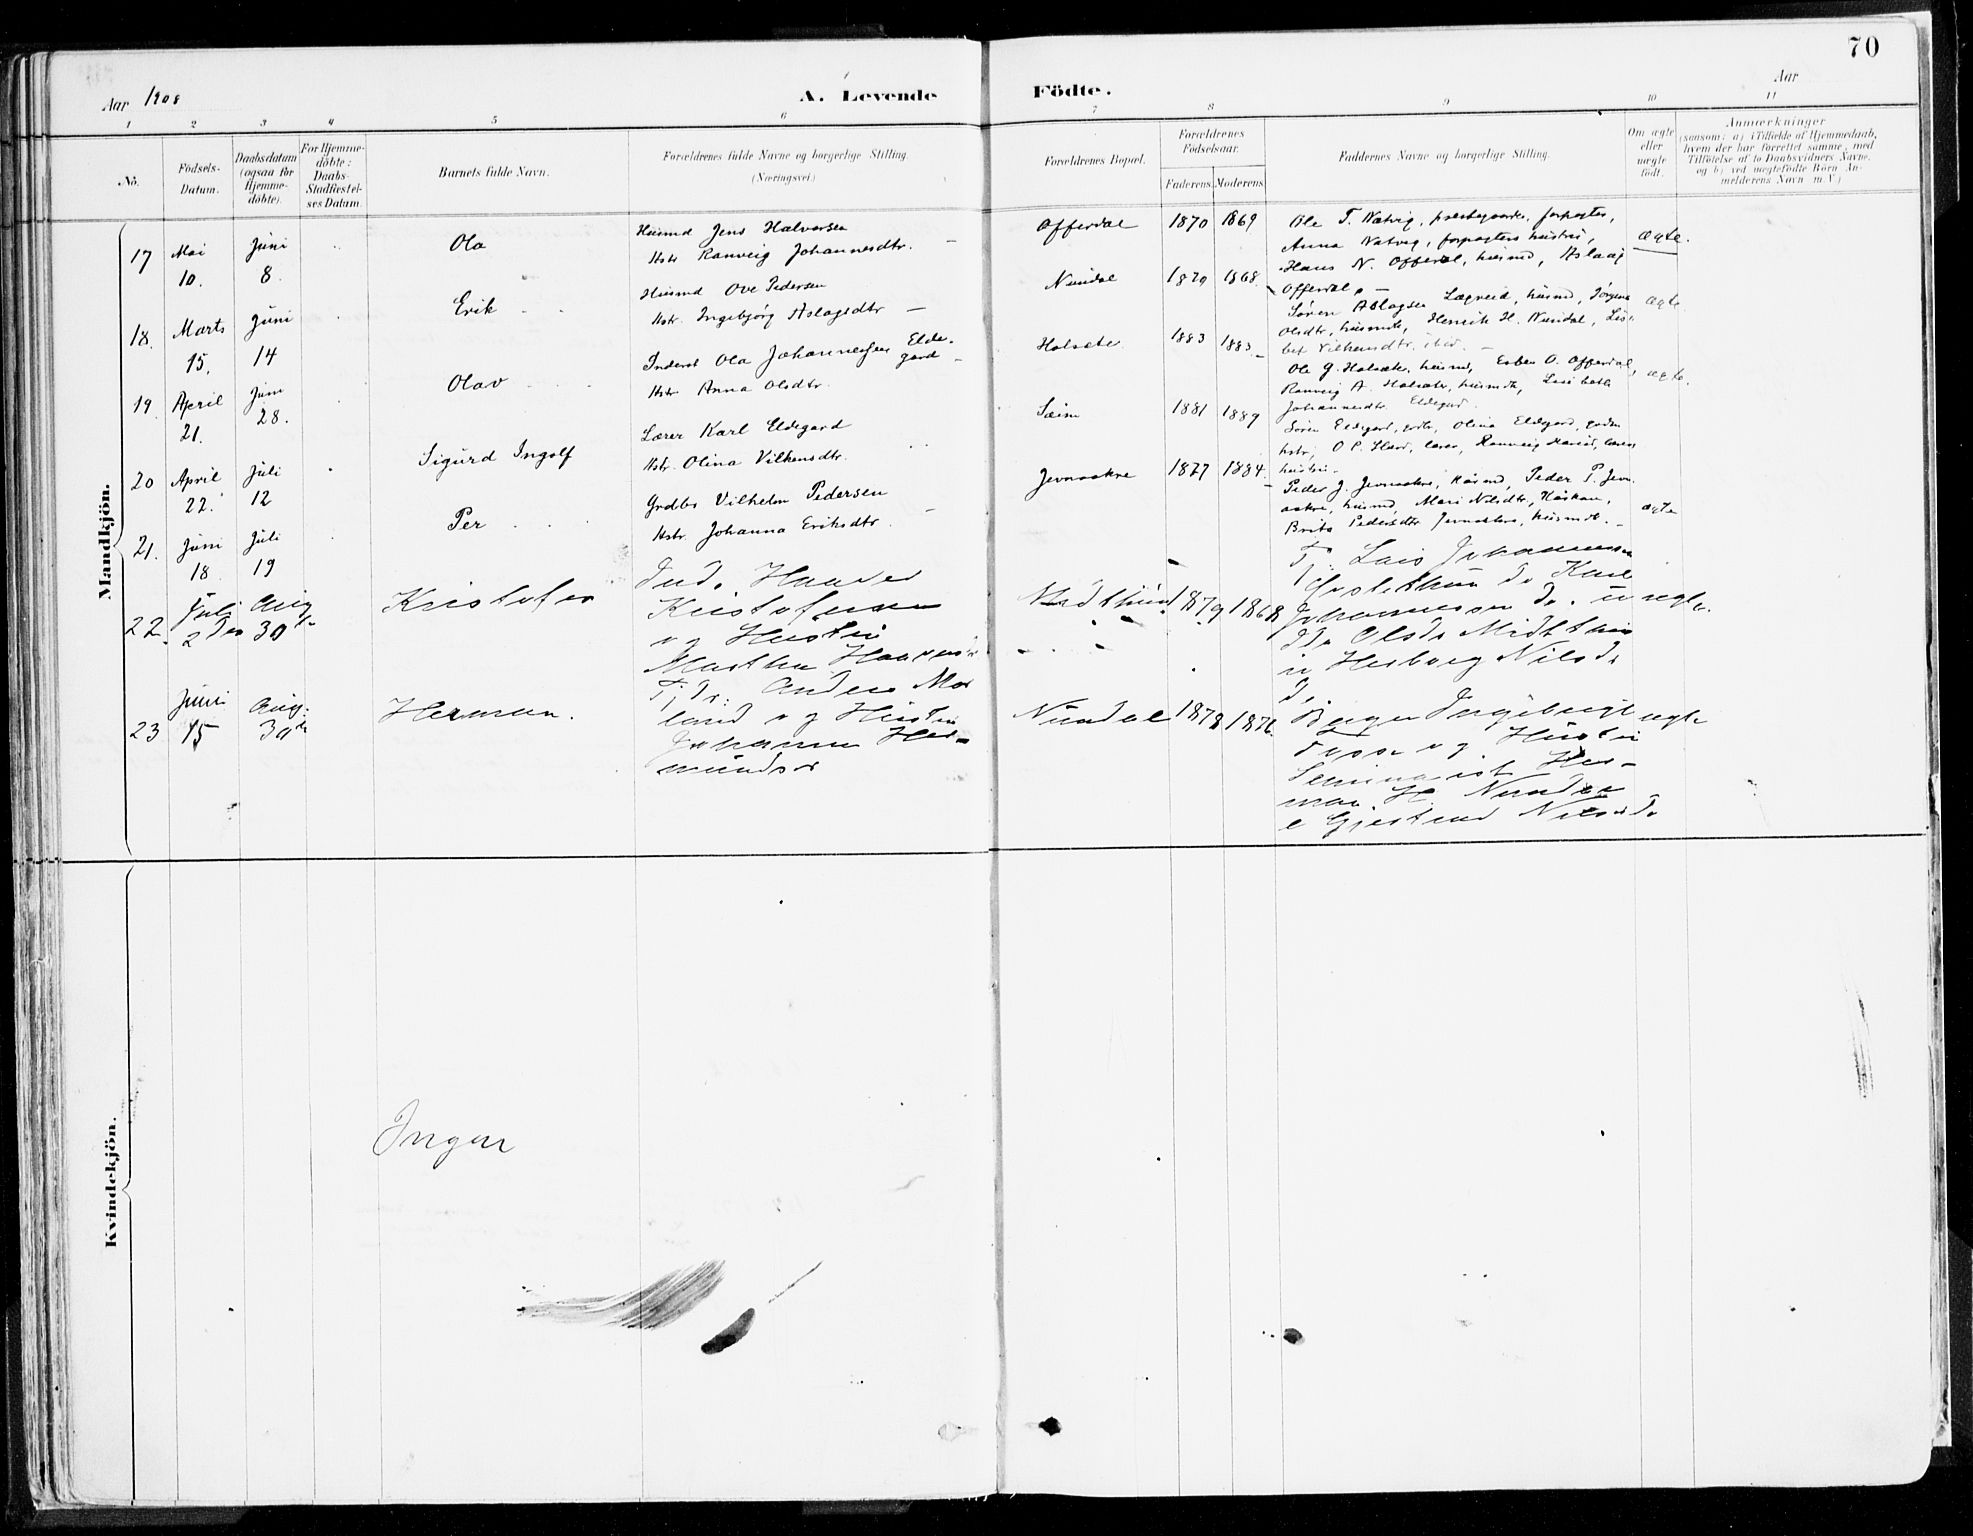 70
Aar 1908
A. Levende Födte.
Aar
1 2 3 4 5 6 7 8 9 10 11
No.
Födsels-Datum.
Daabsdatum (ogsaa for Hjemme-döbte).
For Hjemme-döbte: Daabs-Stadfæstel-ses Datum.
Barnets fulde Navn.
Forældrenes fulde Navne og borgerlige Stilling.
(Næringsvei.)
Forældrenes Bopæl.
Forældrenes Födselsaar.
Faderens. Moderens.
Faddernes Navne og borgerlige Stilling.
Om ægte eller uægte födt.
Anmærkninger
(saasom: a) i Tilfælde af Hjemmedaab,
hvem der har forrettet samme, med
Tilföielse af to Daabsvidners Navne.
og b) ved uægtefödte Börn An-
melderens Navn m. V.)
Mandkjön.
17 Mai 10. Juni 8. Ola
Husmd Jens Halvorsen
Hstr Ranveig Johannesdtr. —
Offerdal 1870 1869
Ole T. Natvig, prestegaards, forpagter,
Anna Natvig, forpagters hustru,
Hans N. Offerdal, husmd, Aslaug
Offerdal, —
ægte.
18. Marts 15. Juni 14 Erik
Husmd Ove Pedersen
Hstr. Ingebjørg Aslagsdtr —
Nundal 1870 1868
Søren Aslagsen Lægreid, husmd, Jørgina
Olsdtr, husmds, Henrik H. Nundal, Lis-
bet Vilhemsdtr. ibid. —
ægte
19 April 21. Juni 28. Olav
Inderst Ola Johannessen Elde-
gard —
Hstr Anna Olsdtr.
Holsæte 1883 1883
Ole G. Holsæte, husmd, Esben O. Offerdal,
Ranveig A. Holsæte, husmdk, Lisbeth
Johannesdtr. Eldegard.
ægte.
20 April 22. Juli 12 Sigurd Ingolf
Lærer Karl Eldegard
Hstr. Olina Vilhemsdtr.
Seim 1881 1889
Søren Eldegard, grdbr, Olina Eldegard,
hstr, O P. , lærer, Ranveig , lærers
hustru —
21. Juni 18 Juli 19 Per
Grdbr Vilhelm Pedersen
Hstr. Johanna Eriksdtr. —
Jevnaakre 1877 1884.
Peder J. Jevnaakre, husmd, Peder P. Jevn-
aakre, husmd, Mari Nilsdtr, ,
Brita Pedersdtr Jevnaakre, husmdk. —
ægte
22. Juli 2den Aug 30te Kristofer
Ind. Haavar
Kristofersen
og Hustru
Martha
Midthun 1879 1868
Tj: Lars Johannessen
 Karl
Johannessen
 Olsdr Midthun
u Herborg Nilsdr
ægte.
23 Juni 15 Aug: 30te Herman.
Tjr: Anders Mo
land og Hustru
Johanna Her-
mundsdr
Nundal 1878 1876.
Ingebrigt
 og Hustru
Seminarist Her-
man H. Nundal
 Nilsdr
ægte
Kvindekjön.
Inger